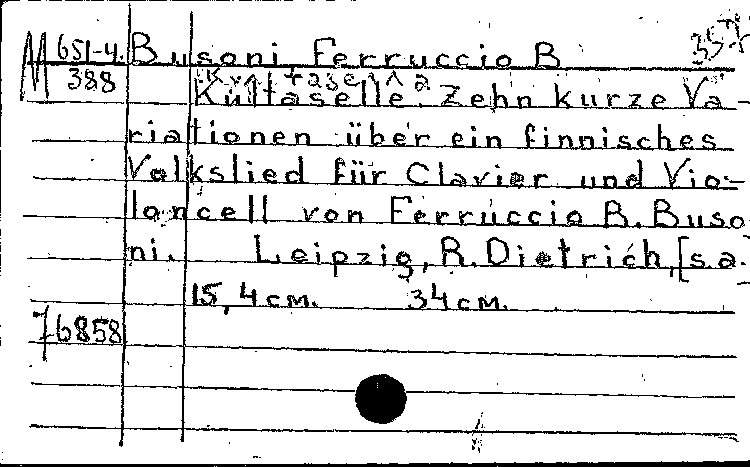 M 651-4. Busoni, Ferruccio B
388
Kultaselle. Zehn kurze Va-
riationen über ein finnisches
Volkslied für Clavier und Vio-
loncell von Ferruccio B. Buso
ni. Leipzig, R. Dietrich, [s.a.
15, 4 cm. 34 cm.
76858